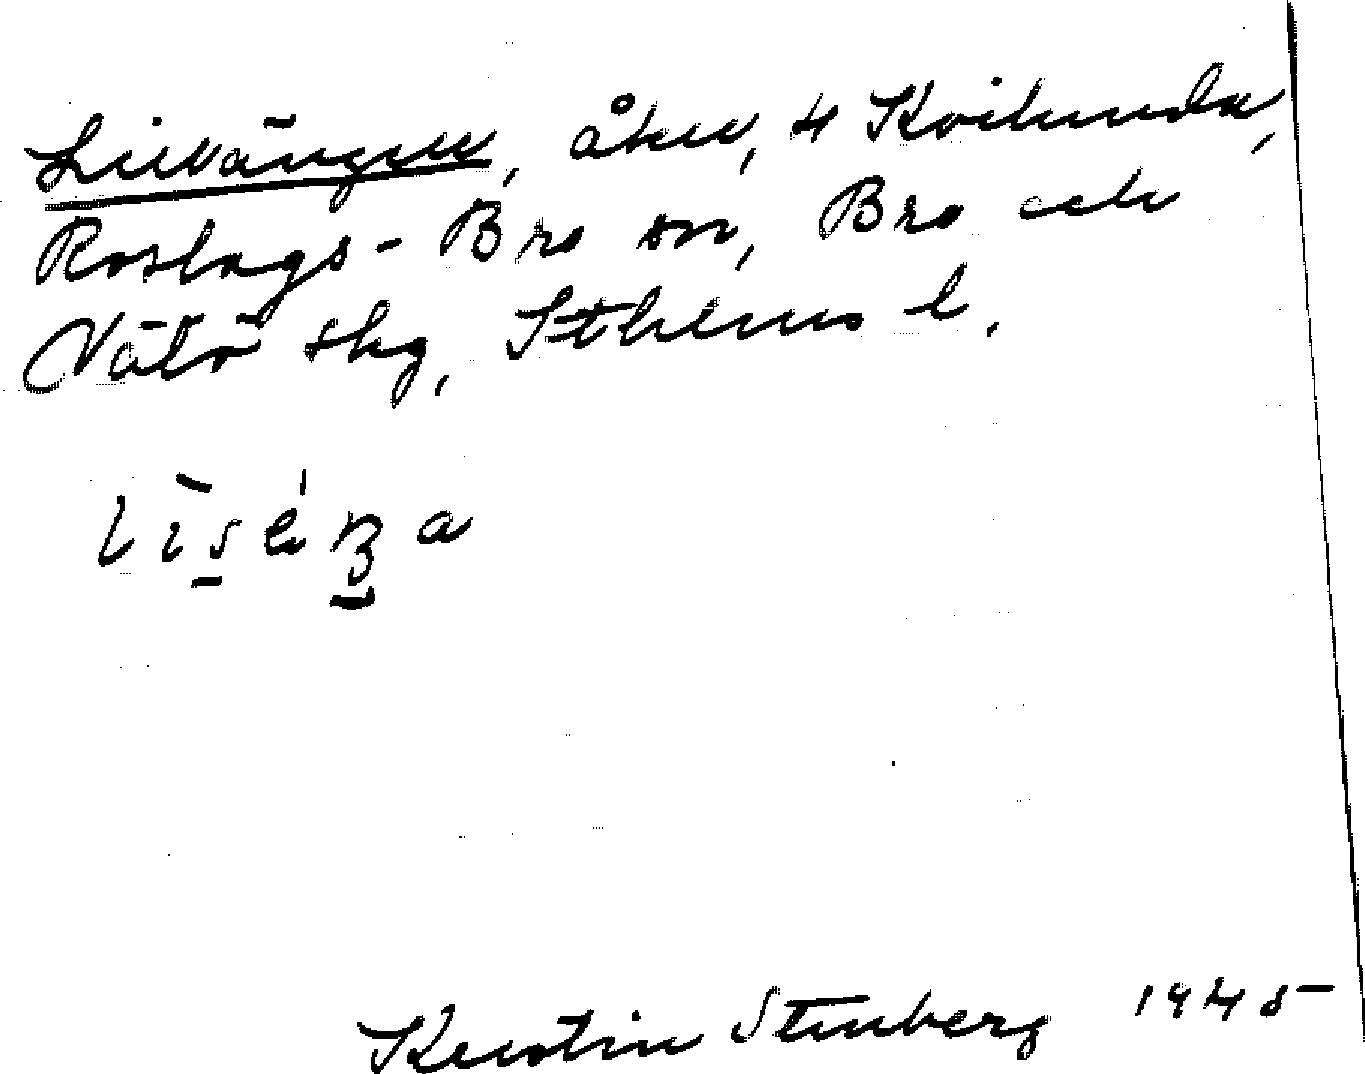 åker, 4 Kvilunda,
Roslags-Bro sn, Bro och
Vätö skg, Sthlms l.
Kerstin Stenberg 1945